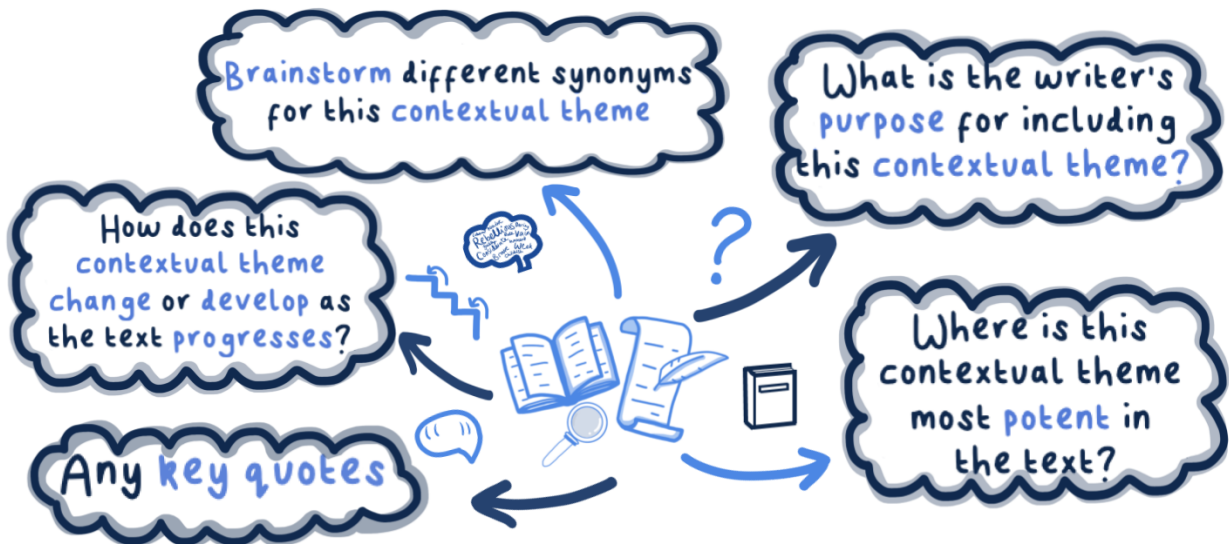 Brainstorm different synonyms
for this contextual theme
What is the writer's
purpose for including
this contextual theme?
How does this
contextual theme
change or develop as
the text progresses?
?
Where is this
contextual theme
most potent in
the text?
Any key quotes